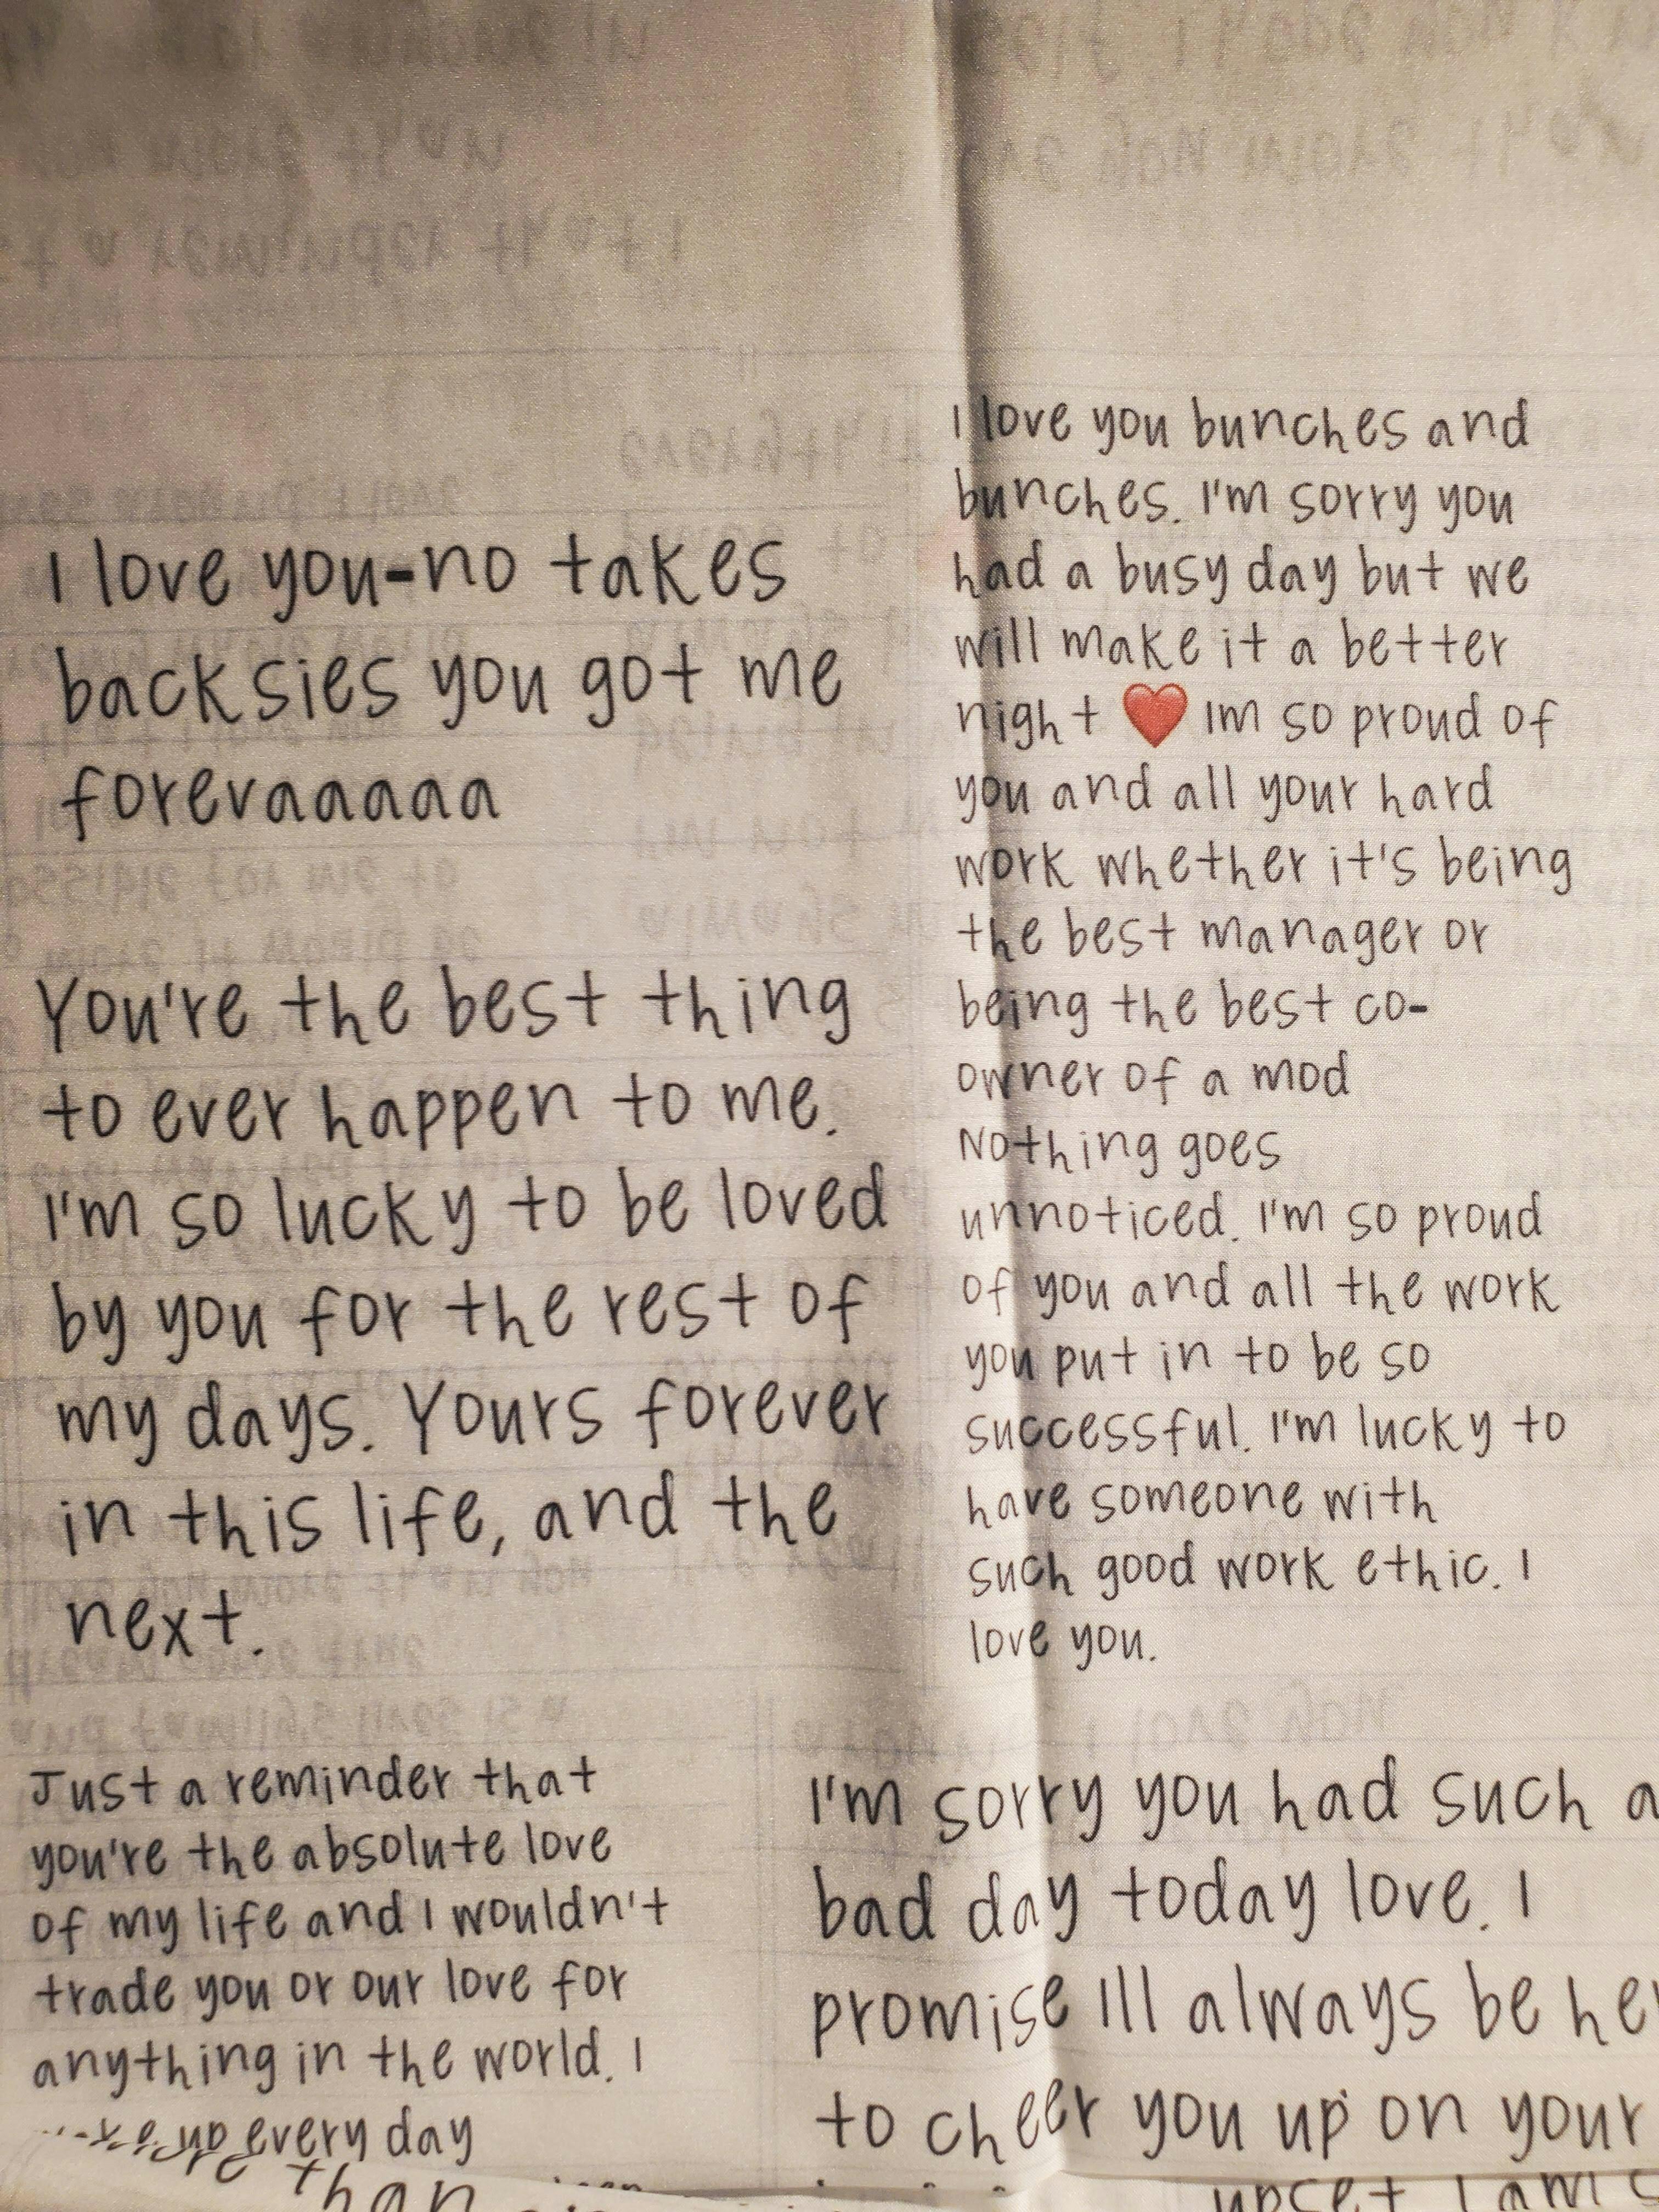 I love you-no takes
backsies you got me
forevaaaaa
You're the best thing
to ever happen to me.
I'm so lucky to be loved
by you for the rest of
my days. Yours forever
in this life, and the
next.
Just a reminder that
you're the absolute love
of my life and I wouldn't
trade you or our love for
anything in the world. I
up every day
than
I love you bunches and
bunches. I'm sorry you
had a busy day but we
will make it a better
night ❤️ Im so proud of
you and all your hard
work whether it's being
the best manager or
being the best co-
owner of a mod
Nothing goes
unnoticed. I'm so proud
of you and all the work
you put in to be so
successful. I'm lucky to
have someone with
such good work ethic. I
love you.
I'm sorry you had such a
bad day today love. I
promise Ill always be
to cheer you up on your
upset I am